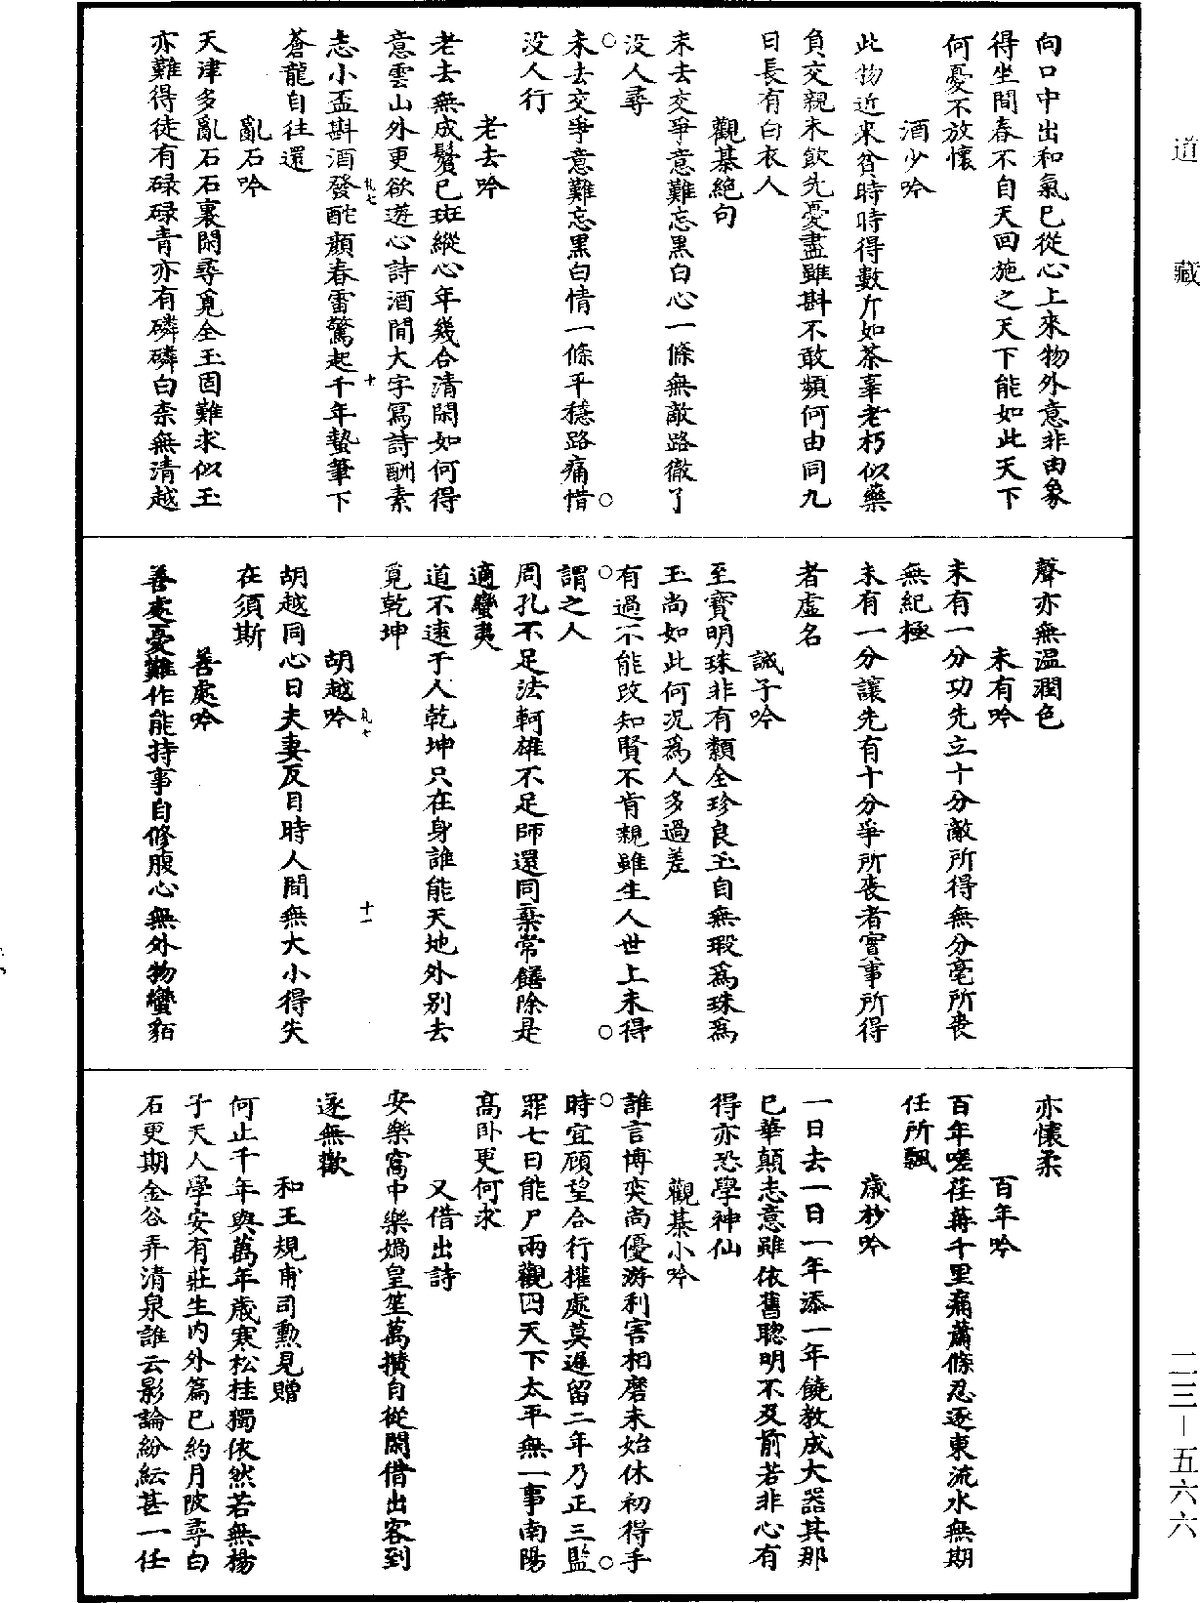 道藏
向口中出和氣已從心上來物外意非由象
得坐間春不自天回施之天下能如此天下
何憂不放懷
酒少吟
此物近來貧時時得數斤如茶辜老朽似藥
負交親未飲先憂盡雖斟不敢頻何由同九
日長有白衣人
觀棊絕句
未去交爭意難忘黑白心一條無敵路徹了
沒人尋
未去交爭意難忘黑白情一條平穩路痛惜
沒人行
老去吟
老去無成鬢已斑縱心年幾合清閑如何得
意雲山外更欲遊心詩酒間大字寫詩酬素
志小盃斟酒發酡顏春雷驚起千年蟄筆下
蒼龍自往還
亂石吟
天津多亂石石裏閑尋覓全玉固難求似玉
亦難得徒有碌碌青亦有磷磷白柰無清越
聲亦無温潤色
未有吟
未有一分功先立十分敵所得無分毫所喪
無紀極
未有一分讓先有十分爭所喪者實事所得
者虛名
誡子吟
至寶明珠非有纇全珍良玉自無瑕爲珠爲
玉尚如此何況爲人多過差
有過不能改知賢不肯親雖生人世上未得
謂之人
周孔不足法軻雄不足師還同棄常饍除是
適蠻夷
道不遠于人乾坤只在身誰能天地外别去
覓乾坤
胡越吟
胡越同心日夫妻反目時人間無大小得失
在須斯
善處吟
善處憂難作能持事自修腹心無外物蠻貊
亦懷柔
百年吟
百年嗟荏苒千里痛蕭條忍逐東流水無期
任所飄
歲杪吟
一日去一日一年添一年饒教成大器其那
已華顛志意雖依舊聰明不及前若非心有
得亦恐學神仙
觀棊小吟
誰言博奕尚優游利害相磨未始休初得手
時宜顧望合行權處莫遲留二年乃正三監
罪七日能尸兩觀四天下太平無一事南陽
高卧更何求
又借出詩
安樂窩中樂媧皇笙萬攢自從閑借出客到
遂無歡
和王規甫司勳見贈
何止千年與萬年歲寒松桂獨依然若無楊
子天人學安有莊生内外篇已約月陂尋白
石更期金谷弄清泉誰云影論紛紜甚一任
二三－五六六